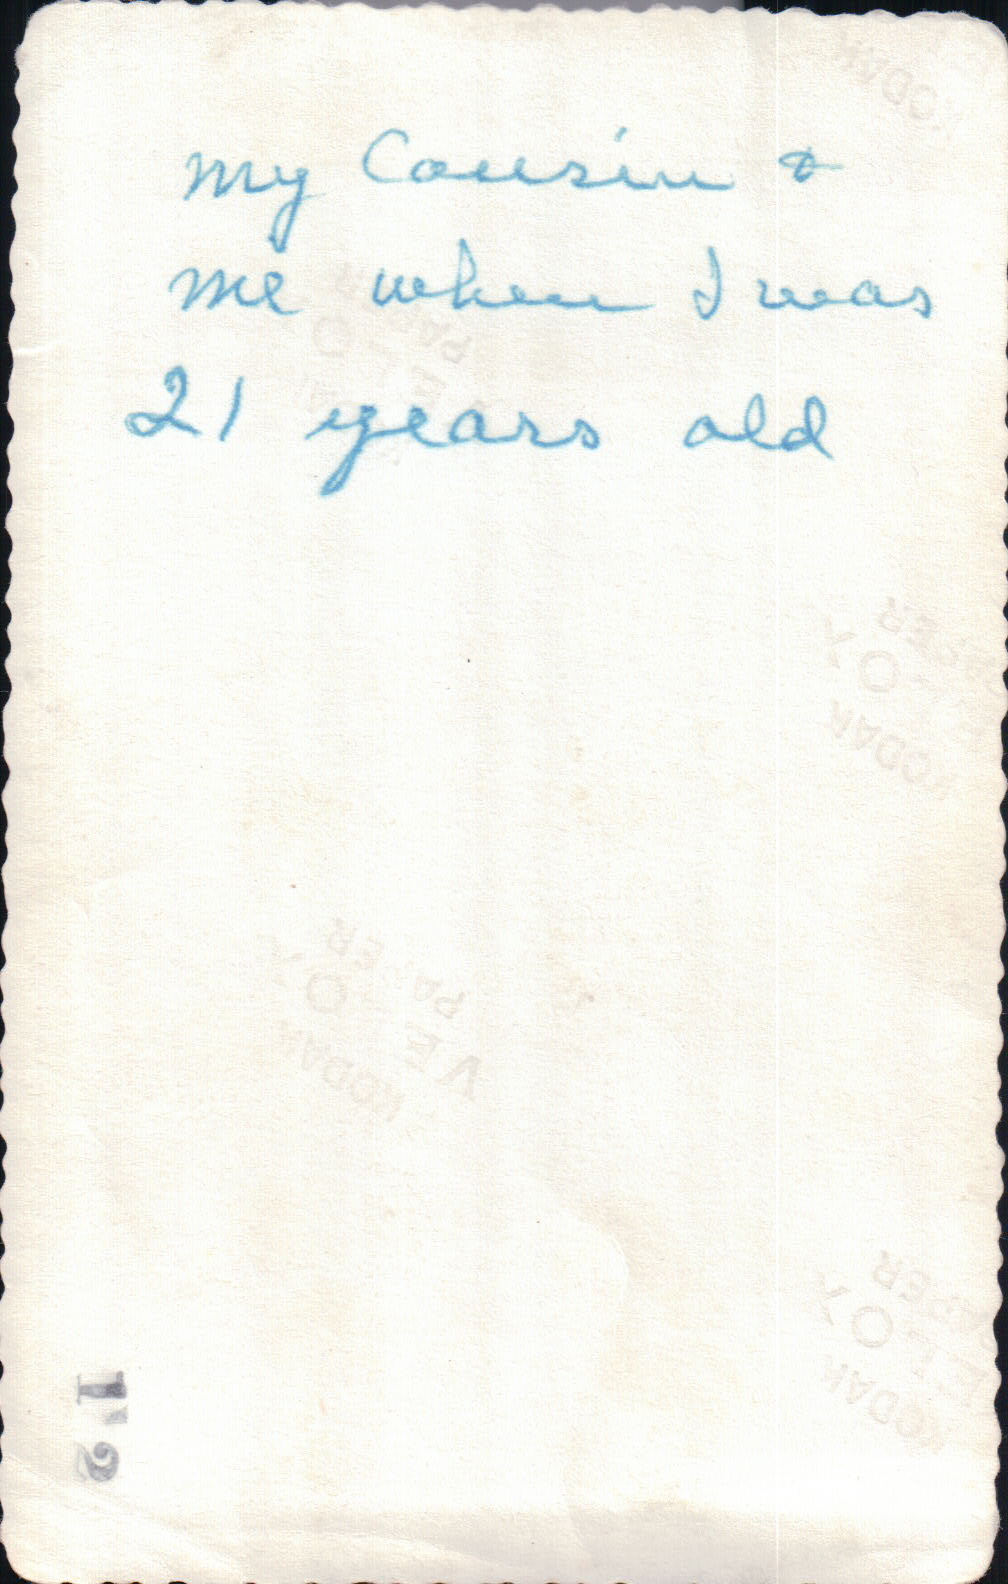 my Cousin &
me when I was
21 years old
KODAK
VELOX
PAPER
KODAK
VELOX
PAPER
KODAK
VELOX
PAPER
KODAK
VELOX
PAPER
KODAK
1'2